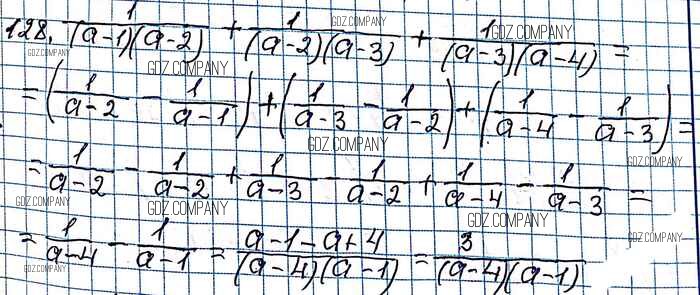 128. 1/((a-1)(a-2)) + 1/((a-2)(a-3)) + 1/((a-3)(a-4)) =
= (1/(a-2) - 1/(a-1)) + (1/(a-3) - 1/(a-2)) + (1/(a-4) - 1/(a-3)) =
= 1/(a-2) - 1/(a-2) + 1/(a-3) - 1/(a-2) + 1/(a-4) - 1/(a-3) =
= 1/(a-4) - 1/(a-1) = (a-1-a+4)/((a-4)(a-1)) = 3/((a-4)(a-1))
GDZ.COMPANY
GDZ.COMPANY
GDZ.COMPANY
GDZ.COMPANY
GDZ.COMPANY
GDZ.COMPANY
GDZ.COMPANY
GDZ.COMPANY
GDZ.COMPANY
GDZ.COMPANY
GDZ.COMPANY
GDZ.COMPANY
GDZ.COMPANY